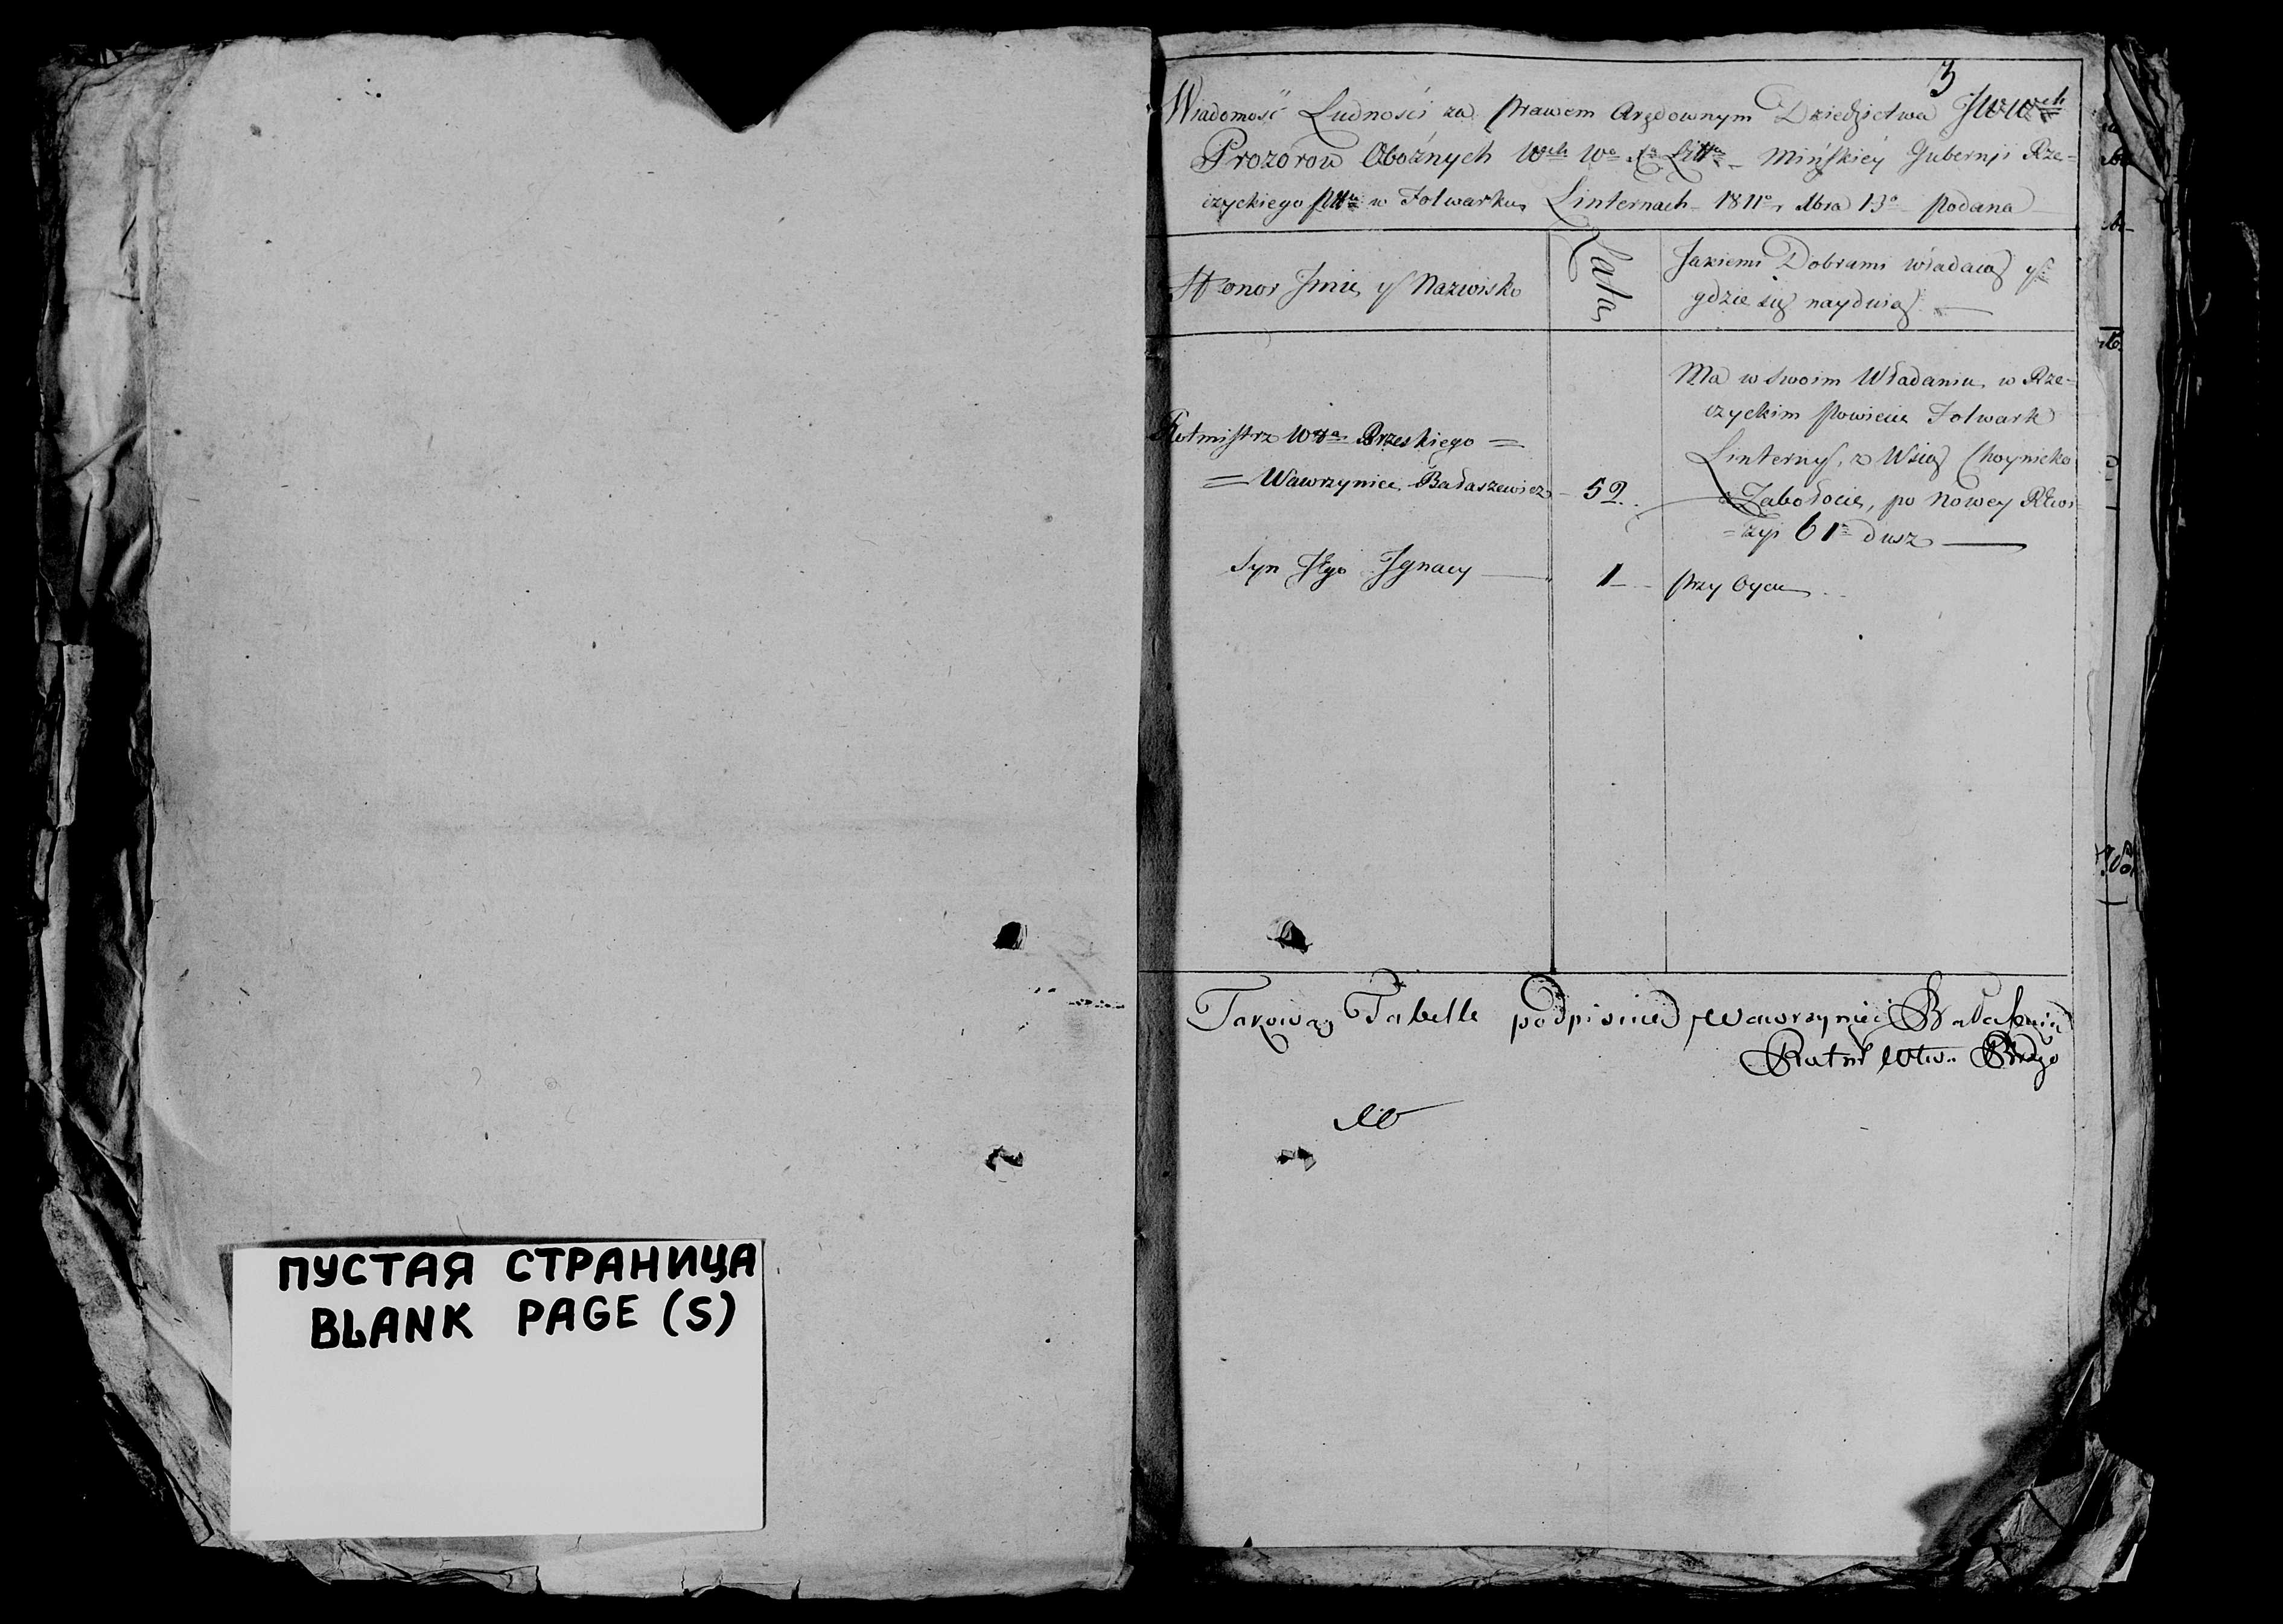 ПУСТАЯ СТРАНИЦА
BLANK PAGE (S)
3
Wiadomość Ludności za prawem Arędownym Dziedzictwa JWW
Prozorow Oboźnych Wch Wo Littt Mińskiey Gubernji Rze=
czyckiego pttu w Folwarku Linternach 1811o 13o podana
Honor Jmie y Nazwisko
Lata
Jakiemi Dobrami władaią y
gdzie się nayduią
Rotmistrz Brzeskiego =
= Wawrzyniec Badaszewicz
52
Ma w swoim Władaniu w Rze=
czyckim Powiecie Folwark
Linterny, z Wsią Choynicko
Zabołocie, po Nowey
=zyi 61 dusz
Syn Jgo Jgnacy
1
przy Oycu
Takową Tabelle podpisuie Wawrzyniec
Rotm